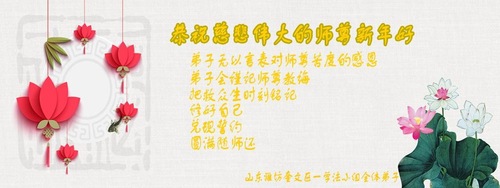 恭祝慈悲伟大的师尊新年好
弟子无以言表对师尊苦度的感恩
弟子会谨记师尊教诲
把救众生时刻铭记
修好自己
兑现誓约
圆满随师还
山东潍坊奎文区一学法小组全体弟子